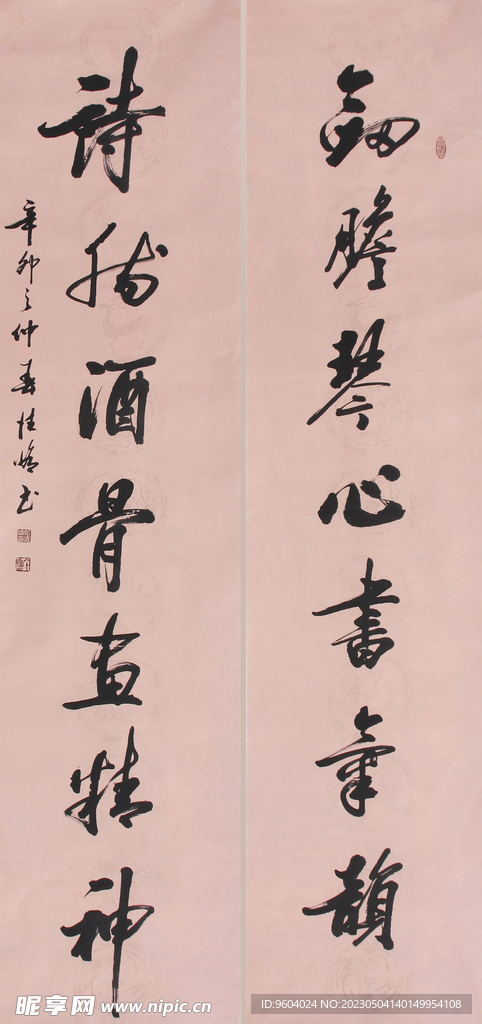 劍膽琴心書氣韻
詩酒骨畫精神
辛卯之仲春书
昵享网 www.nipic.cn
ID:9604024 NO:20230504140149954108